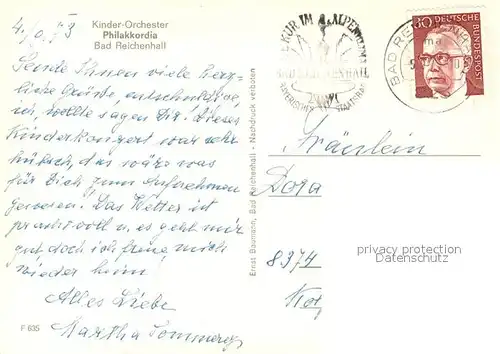 4./10.73
Kinder-Orchester
Philakkordia
Bad Reichenhall
Sende Ihnen viele herz-
liche Grüße, entschuldige,
ich wollte sagen Dir! Dieses
Kinderkonzert war sehr
hübsch, das wäre was
für Dich zum Aufnehmen
gewesen. Das Wetter ist
prachtvoll u. es geht mir
gut, doch ich freue mich
wieder heim!
Alles Liebe
Martha
F 635
Ernst Baumann, Bad Reichenhall - Nachdruck verboten
KUR IM ALPENKLIMA
BAD REICHENHALL
BAYERISCHES STAATSBAD
BAD REICHENHALL
30 DEUTSCHE
BUNDESPOST
Fräulein
Dora
8374
privacy protection
Datenschutz